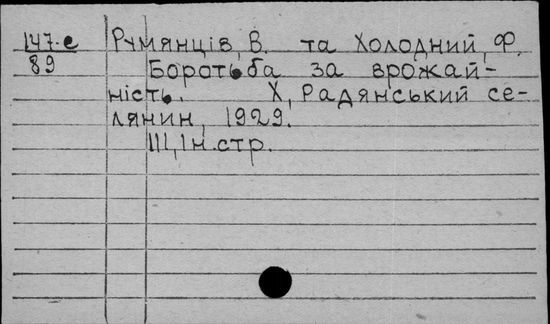 147-е Румянців, В. та Холодний, Ф.
89 Боротьба за врожай-
ність. Х, Радянський се-
лянин, 1929.
111, 1 н. стр.